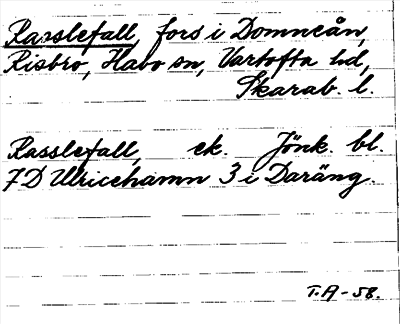 Rasslefall, fors i Domneån,
Risbro, Habo sn, Vartofta hd,
Skarab. l.
Rasslefall, ek. Jönk. bl.
7D Ulricehamn 3 i Daräng.
T.A-58.